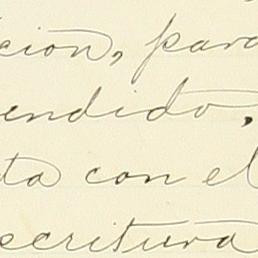 cion, para
endido,
ta con el
scritura